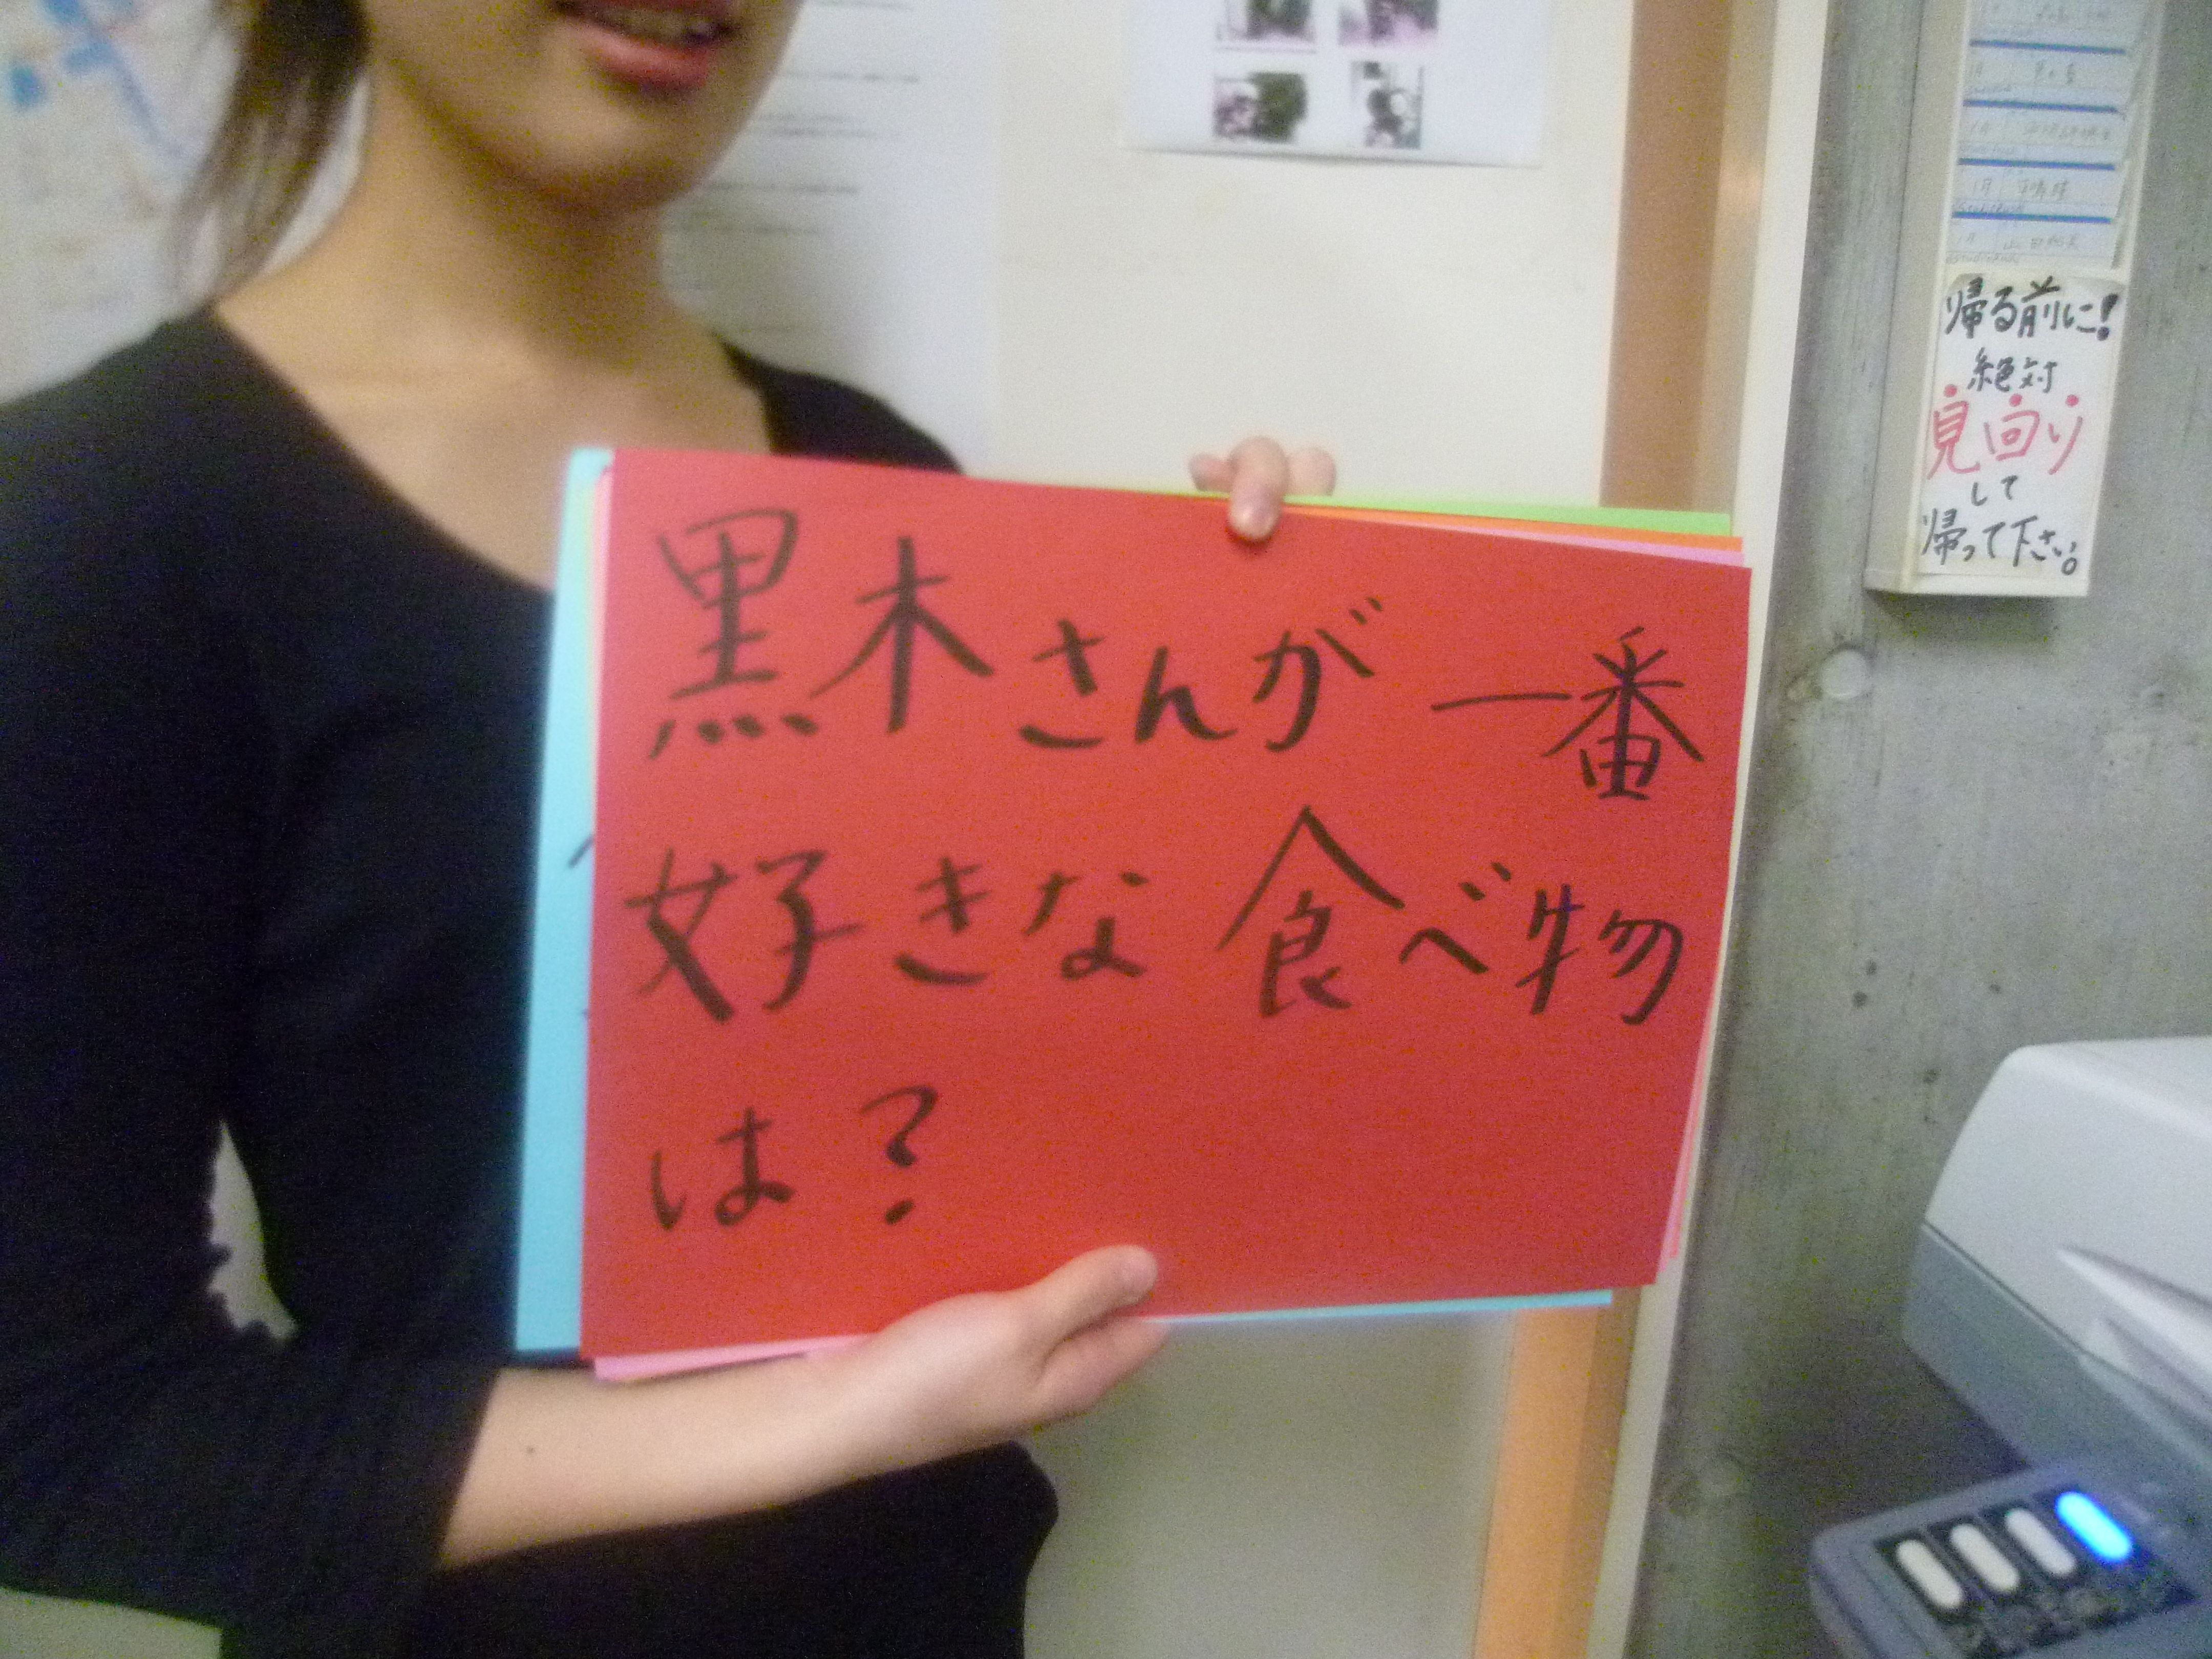 黒木さんが一番
好きな食べ物
は?
帰る前に!
絶対
見回り
して
帰って下さい。